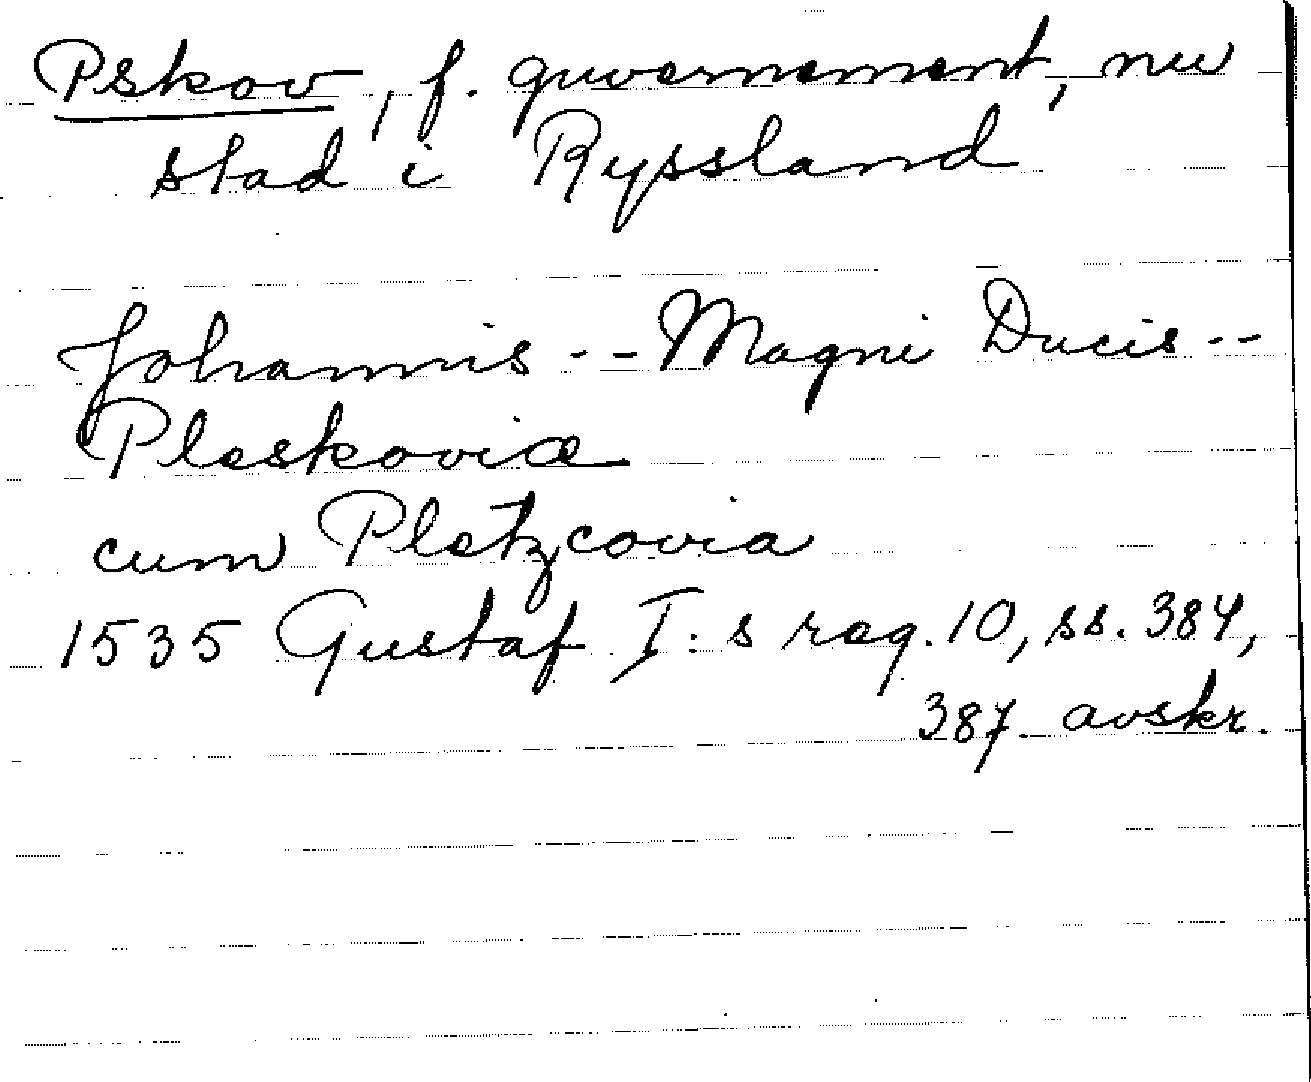 Pskov, f. guvernement, nu
stad i Ryssland
Johannis -- Magni Ducis --
Pleskoviæ
cum Pletzcovia
1535 Gustaf I:s reg. 10, ss. 384,
387. avskr.